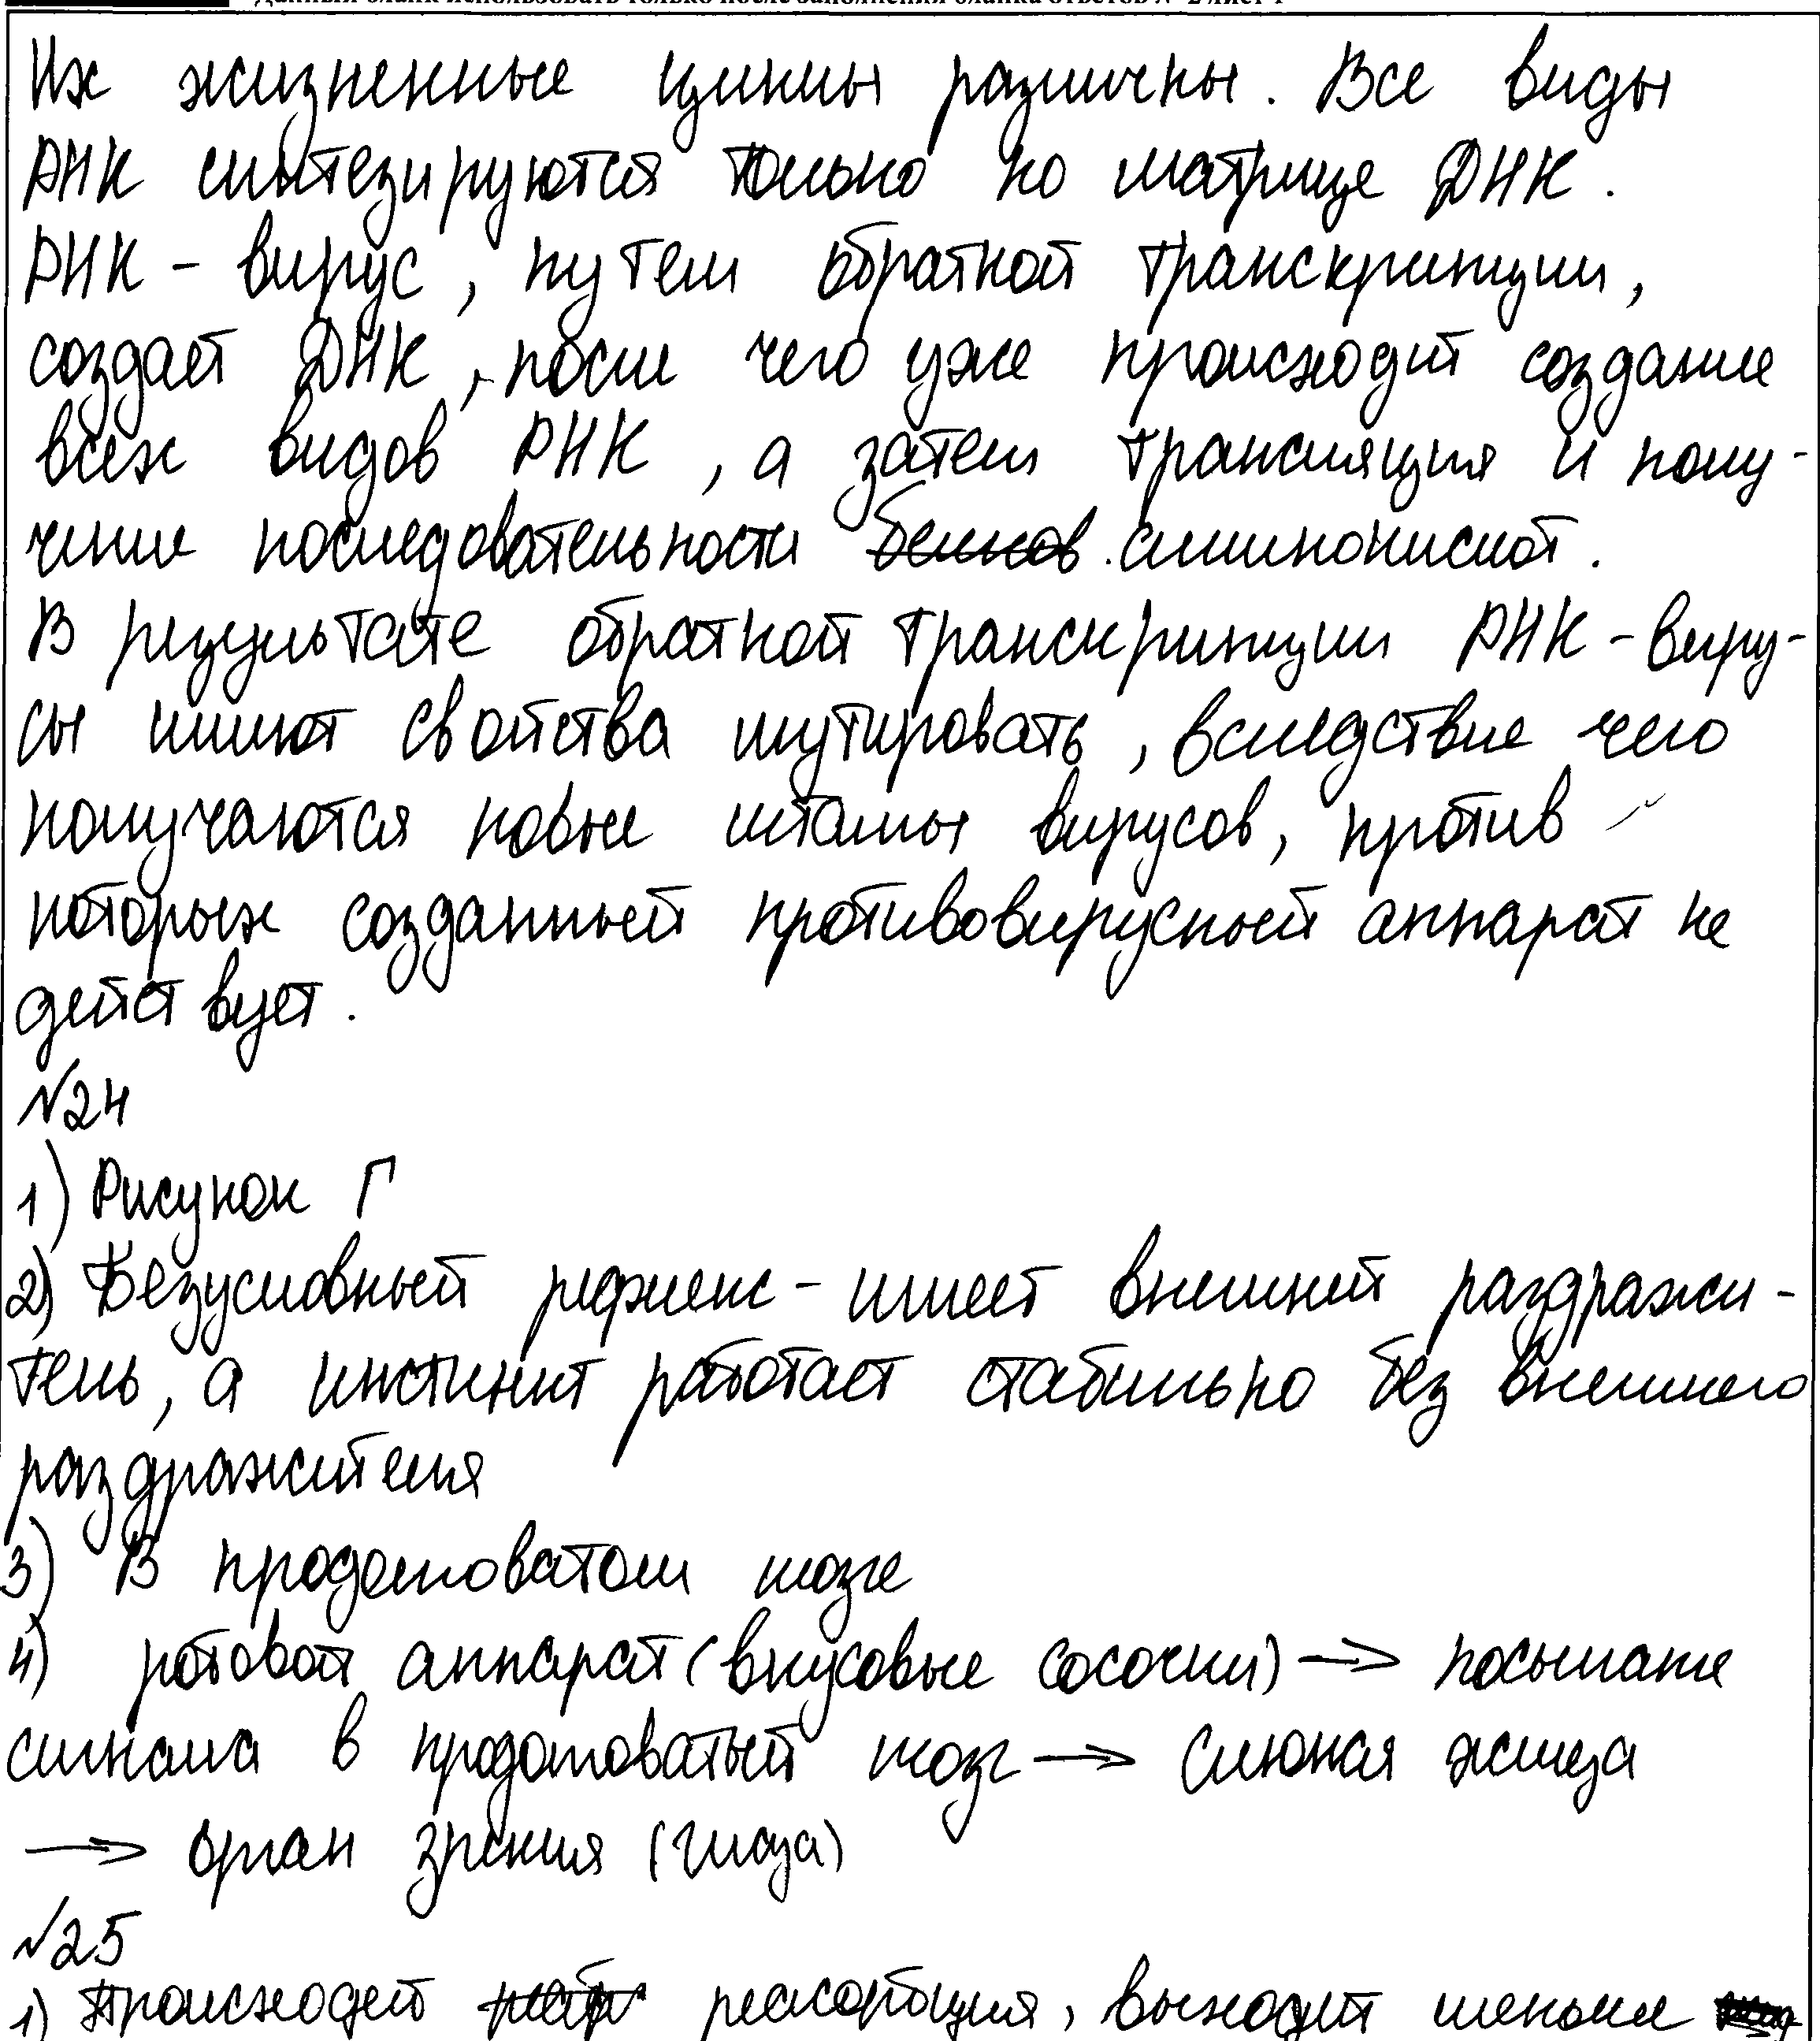 Данный бланк использовать только после заполнения бланка ответов № 2 лист 1
Их жизненные циклы различны. Все виды
РНК синтезируются только по матрице ДНК.
РНК - вирус, путем обратной транскрипции,
создает ДНК, после чего уже происходит создание
всех видов РНК, а затем трансляция и полу-
чение последовательности белков аминокислот.
В результате обратной транскрипции РНК - виру-
сы имеют свойства мутировать, вследствие чего
получаются новые штамы вирусов, против
которых созданный противовирусный аппарат не
действует.
№24
1) Рисунок Г
2) Безусловный рефлекс - имеет внешний раздражи-
тель, а инстинкт работает стабильно без внешнего
раздражителя
3) В продолговатом мозге
4) ротовой аппарат (вкусовые сосочки) → посылание
сигнала в продолговатый мозг → слюная железа
→ орган зрения (глаза)
№25
1) Происходит реасорбция, выходит меньше